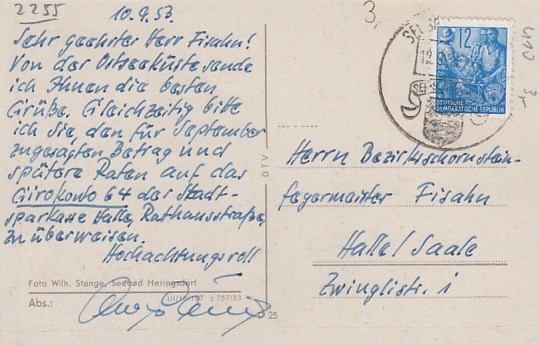 2255
10.9.53.
3
Sehr geehrter Herr Fisahn!
Von der Ostseeküste sende
ich Ihnen die besten
Grüße. Gleichzeitig bitte
ich Sie, den für September
zugesagten Betrag und
spätere Raten auf das
Girokonto 64 der Stadt-
sparkasse Halle, Rathausstraße,
zu überweisen.
Hochachtungsvoll
Foto Wilh. Stange, Seebad Heringsdorf
Abs.:
25
DTV
12
DEUTSCHE
DEMOKRATISCHE REPUBLIK
Herrn Bezirksschornstein-
fegermeister Fisahn
Halle/Saale
Zwinglistr. 1